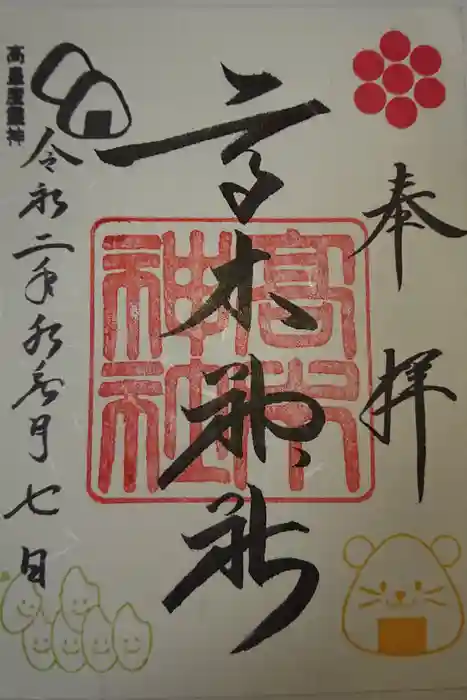 奉拝
高木神社
高木神社
令和二年水無月七日
高皇産靈神